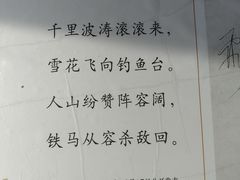 千里波涛滚滚来，
雪花飞向钓鱼台。
人山纷赞阵容阔，
铁马从容杀敌回。